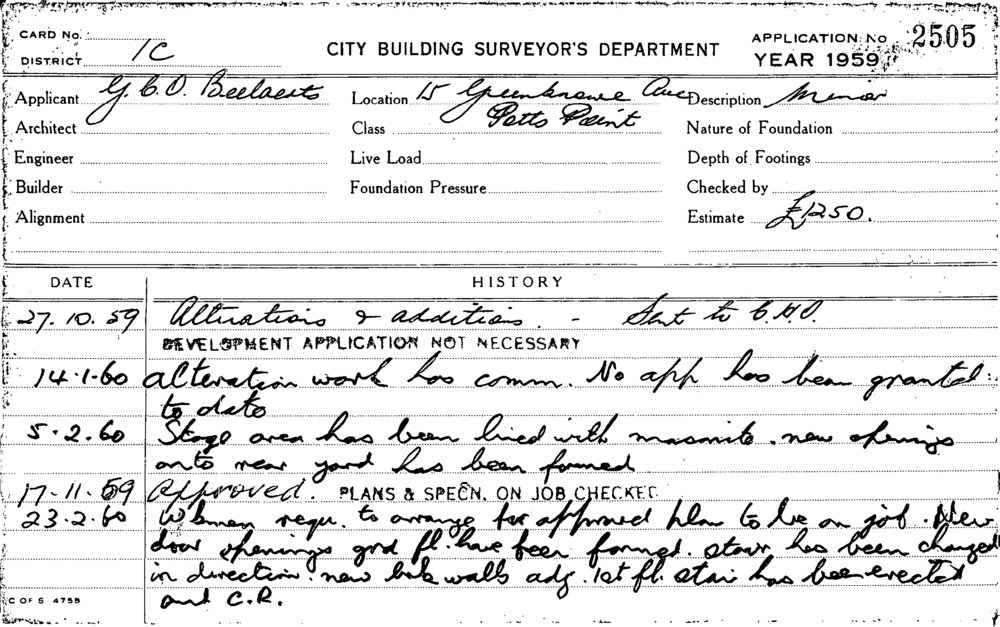 CARD No.
DISTRICT 1C
CITY BUILDING SURVEYOR'S DEPARTMENT
APPLICATION No 2505
YEAR 1959
Applicant G.C.O. Beelaerts Location 15 Greenknowe Ave Description Minor
Potts Point
Architect Class Nature of Foundation
Engineer Live Load Depth of Footings
Builder Foundation Pressure Checked by
Alignment Estimate £1250.
DATE HISTORY
27.10.59 Alterations & additions. - Sent to C.H.O.
DEVELOPMENT APPLICATION NOT NECESSARY
14.1.60 alteration work has comm. No app has been granted
to date
5.2.60 Stage area has been lined with masonite. new openings
onto rear yard has been formed
17.11.59 Approved. PLANS & SPECN. ON JOB CHECKED
23.2.60 requ. to arrange for approved plan to be on job. New
door openings grd fl. have been formed. stair has been changed
in direction. new brk walls adj. 1st fl. stair has been erected
and C.R.
C OF S 4755